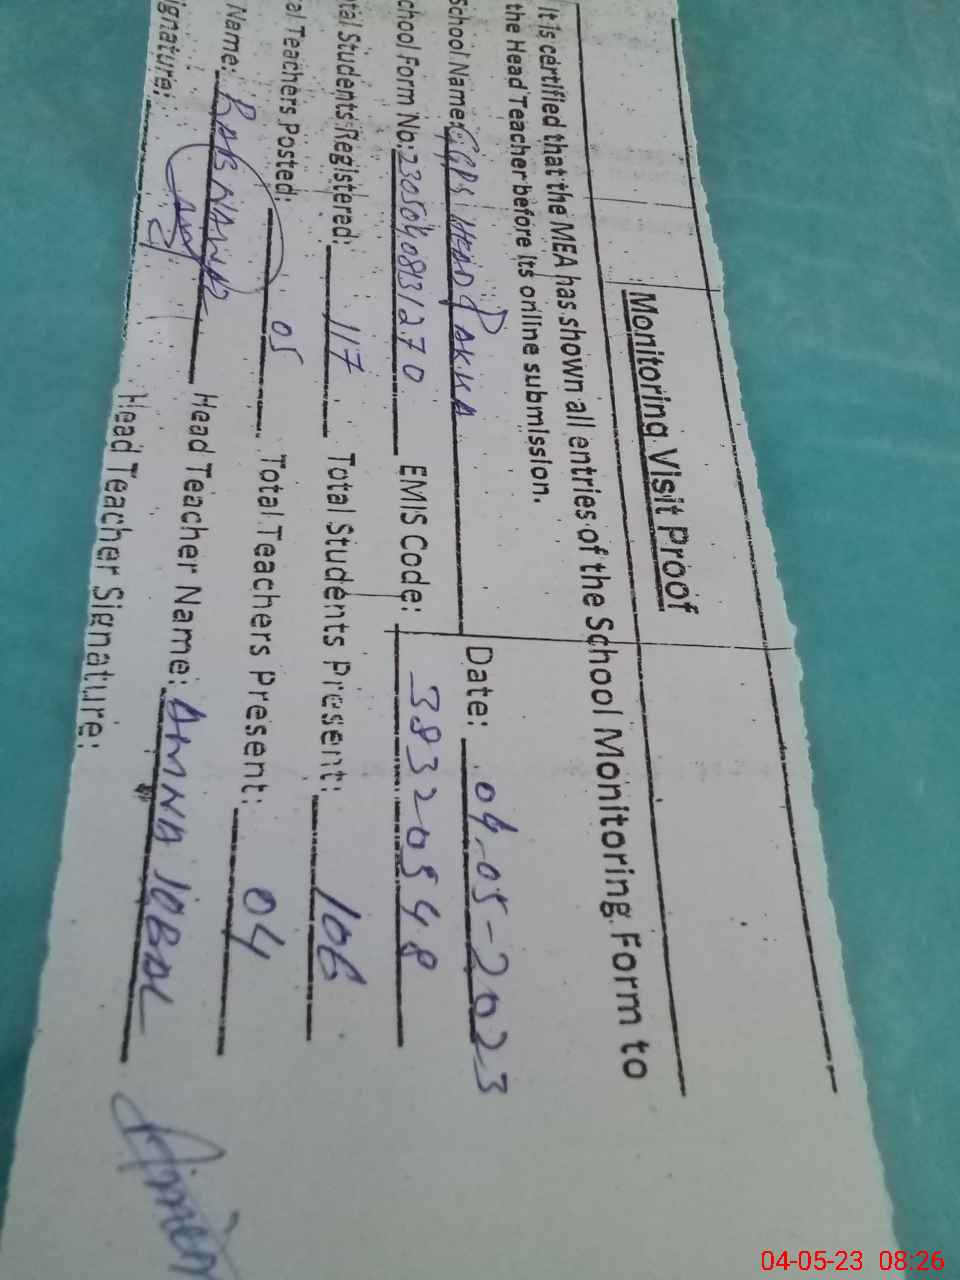 Monitoring Visit Proof
It is certified that the MEA has shown all entries of the School Monitoring Form to
the Head Teacher before its online submission.
School Name: GGPS HEAD PAKKA Date: 04-05-2023
chool Form No: 23050408131270 EMIS Code: 38320548
tal Students Registered: 117 Total Students Present: 106
al Teachers Posted: 05 Total Teachers Present: 04
Name: RAB NAWAZ Head Teacher Name: AMNA IQBAL
ignature: Head Teacher Signature:
04-05-23 08:26